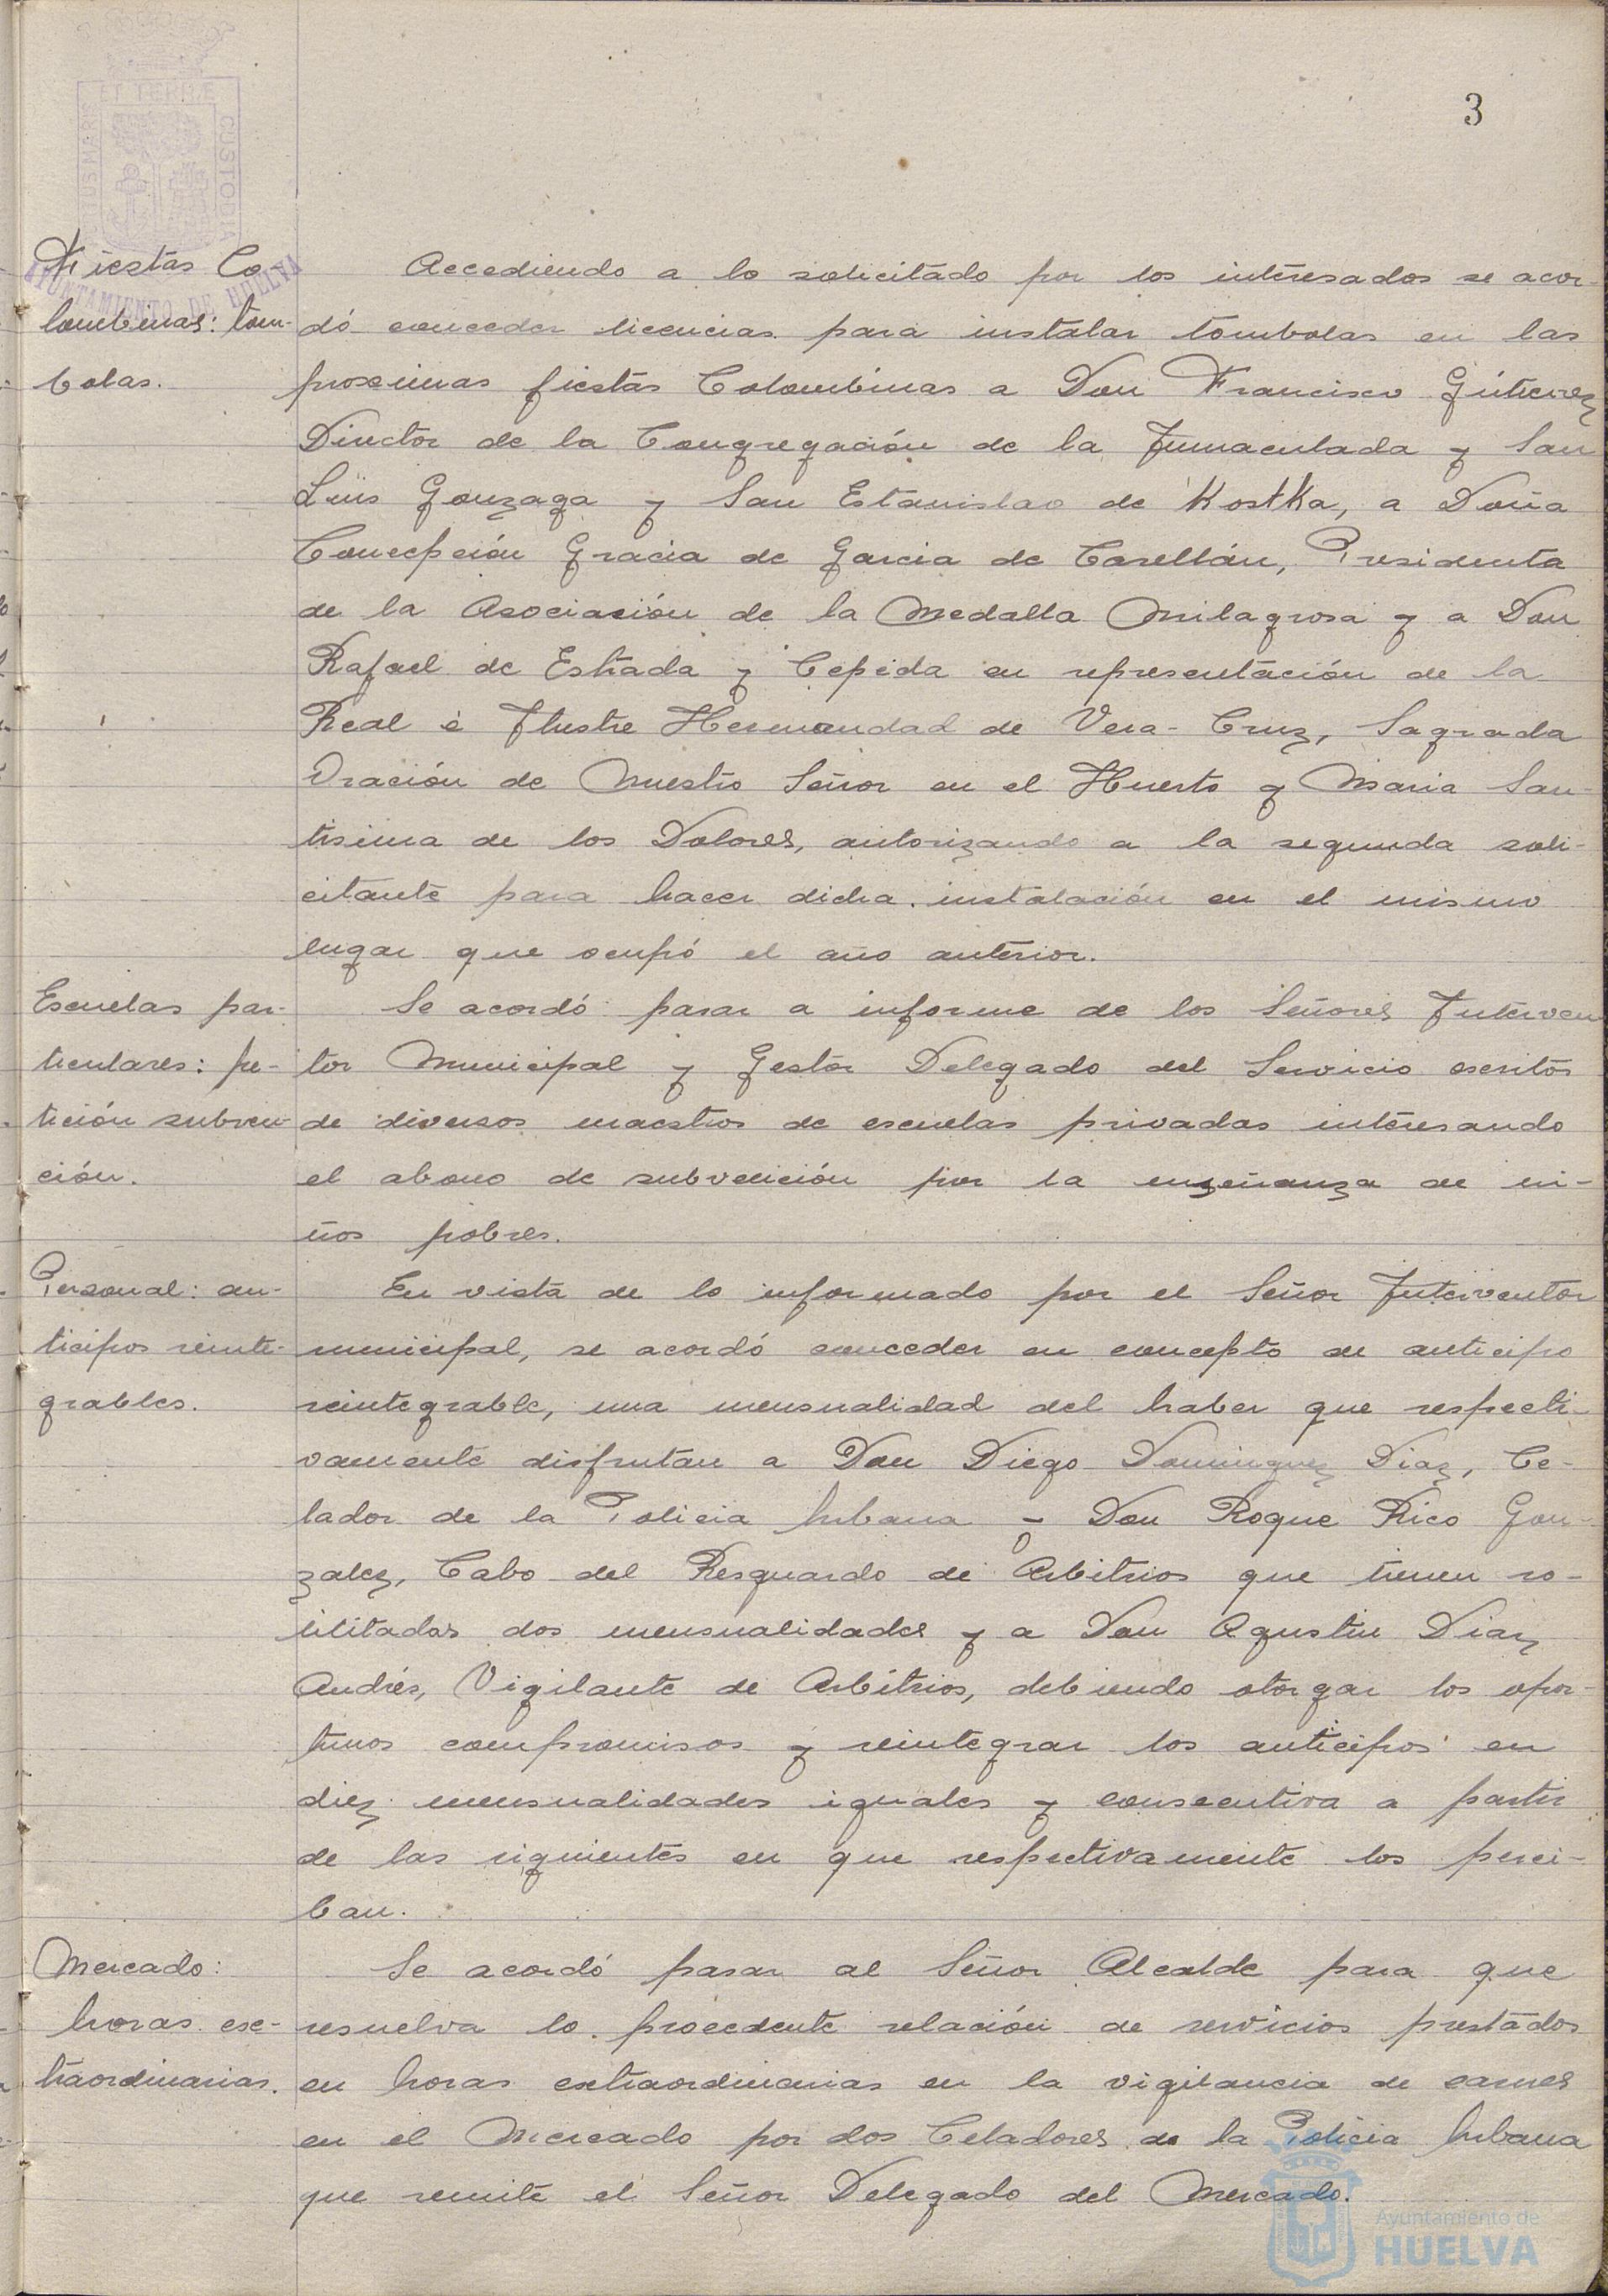 3
Fiestas Co-
lombinas: tóm-
bolas.
Accediendo a lo solicitado por los interesados se acor-
dó conceder licencias para instalar tómbolas en las
proximas fiestas Colombinas a Don Francisco Gutierrez
Director de la Congregación de la Inmaculada y San
Luis Gonzaga y San Estanislao de Kostka, a Doña
Concepción Gracia de Garcia de Casellán, Presidenta
de la Asociación de la Medalla Milagrosa y a Don
Rafael de Estrada y Cepeda en representación de la
Real é Ilustre Hermandad de Vera-Cruz, Sagrada
Oración de Nuestro Señor en el Huerto y Maria San-
tisima de los Dolores, autorizando a la segunda soli-
citante para hacer dicha instalación en el mismo
lugar que ocupó el año anterior.
Escuelas par-
ticulares: pe-
tición subven-
ción.
Se acordó pasar a informe de los Señores Interven
tor Municipal y Gestor Delegado del Servicio escritos
de diversos maestros de escuelas privadas interesando
el abono de subvención por la enseñanza de ni-
ños pobres.
Personal: an-
ticipos reinte-
grables.
En vista de lo informado por el Señor Interventor
municipal, se acordó conceder en concepto de anticipo
reintegrable, una mensualidad del haber que respecti-
vamente disfrutan a Don Diego Dominguez Diaz, Ce-
lador de la Policia Urbana y Don Roque Rico Gon-
zalez, Cabo del Resguardo de Arbitrios que tienen so-
licitadas dos mensualidades y a Don Agustin Diaz
Andrés, Vigilante de Arbitrios, debiendo otorgar los opor-
tunos compromisos y reintegrar los anticipos en
diez mensualidades iguales y consecutiva a partir
de las siguientes en que respectivamente los perci-
ban.
Mercado:
horas ex-
traordinarias.
Se acordó pasar al Señor Alcalde para que
resuelva lo procedente relación de servicios prestados
en horas extraordinarias en la vigilancia de carnes
en el Mercado por dos Celadores de la Policia Urbana
que remite el Señor Delegado del Mercado.
Ayuntamiento de
HUELVA